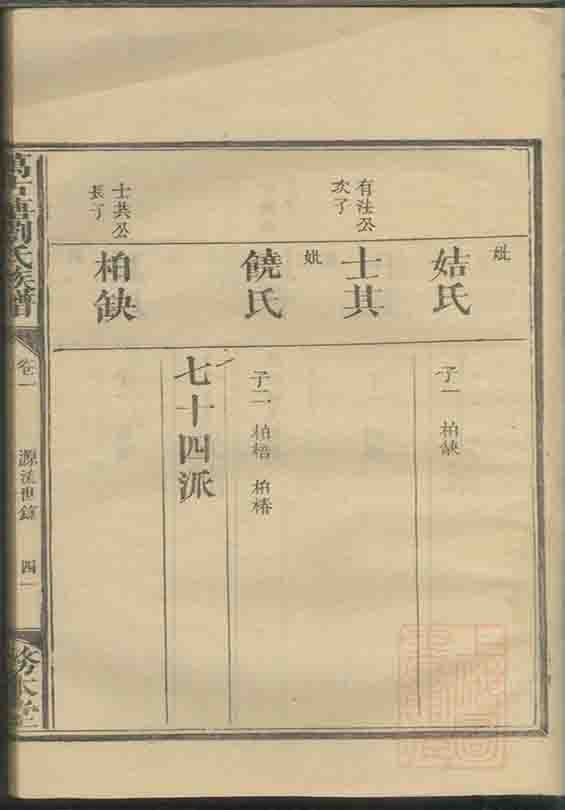 妣
姞氏
子一 柏缺
有法公
次子
士其
妣
饒氏
子二 柏梧 柏椿
七十四派
士共公
長子
柏缺
劉氏族譜
卷一
源流世錄
四一
務本堂